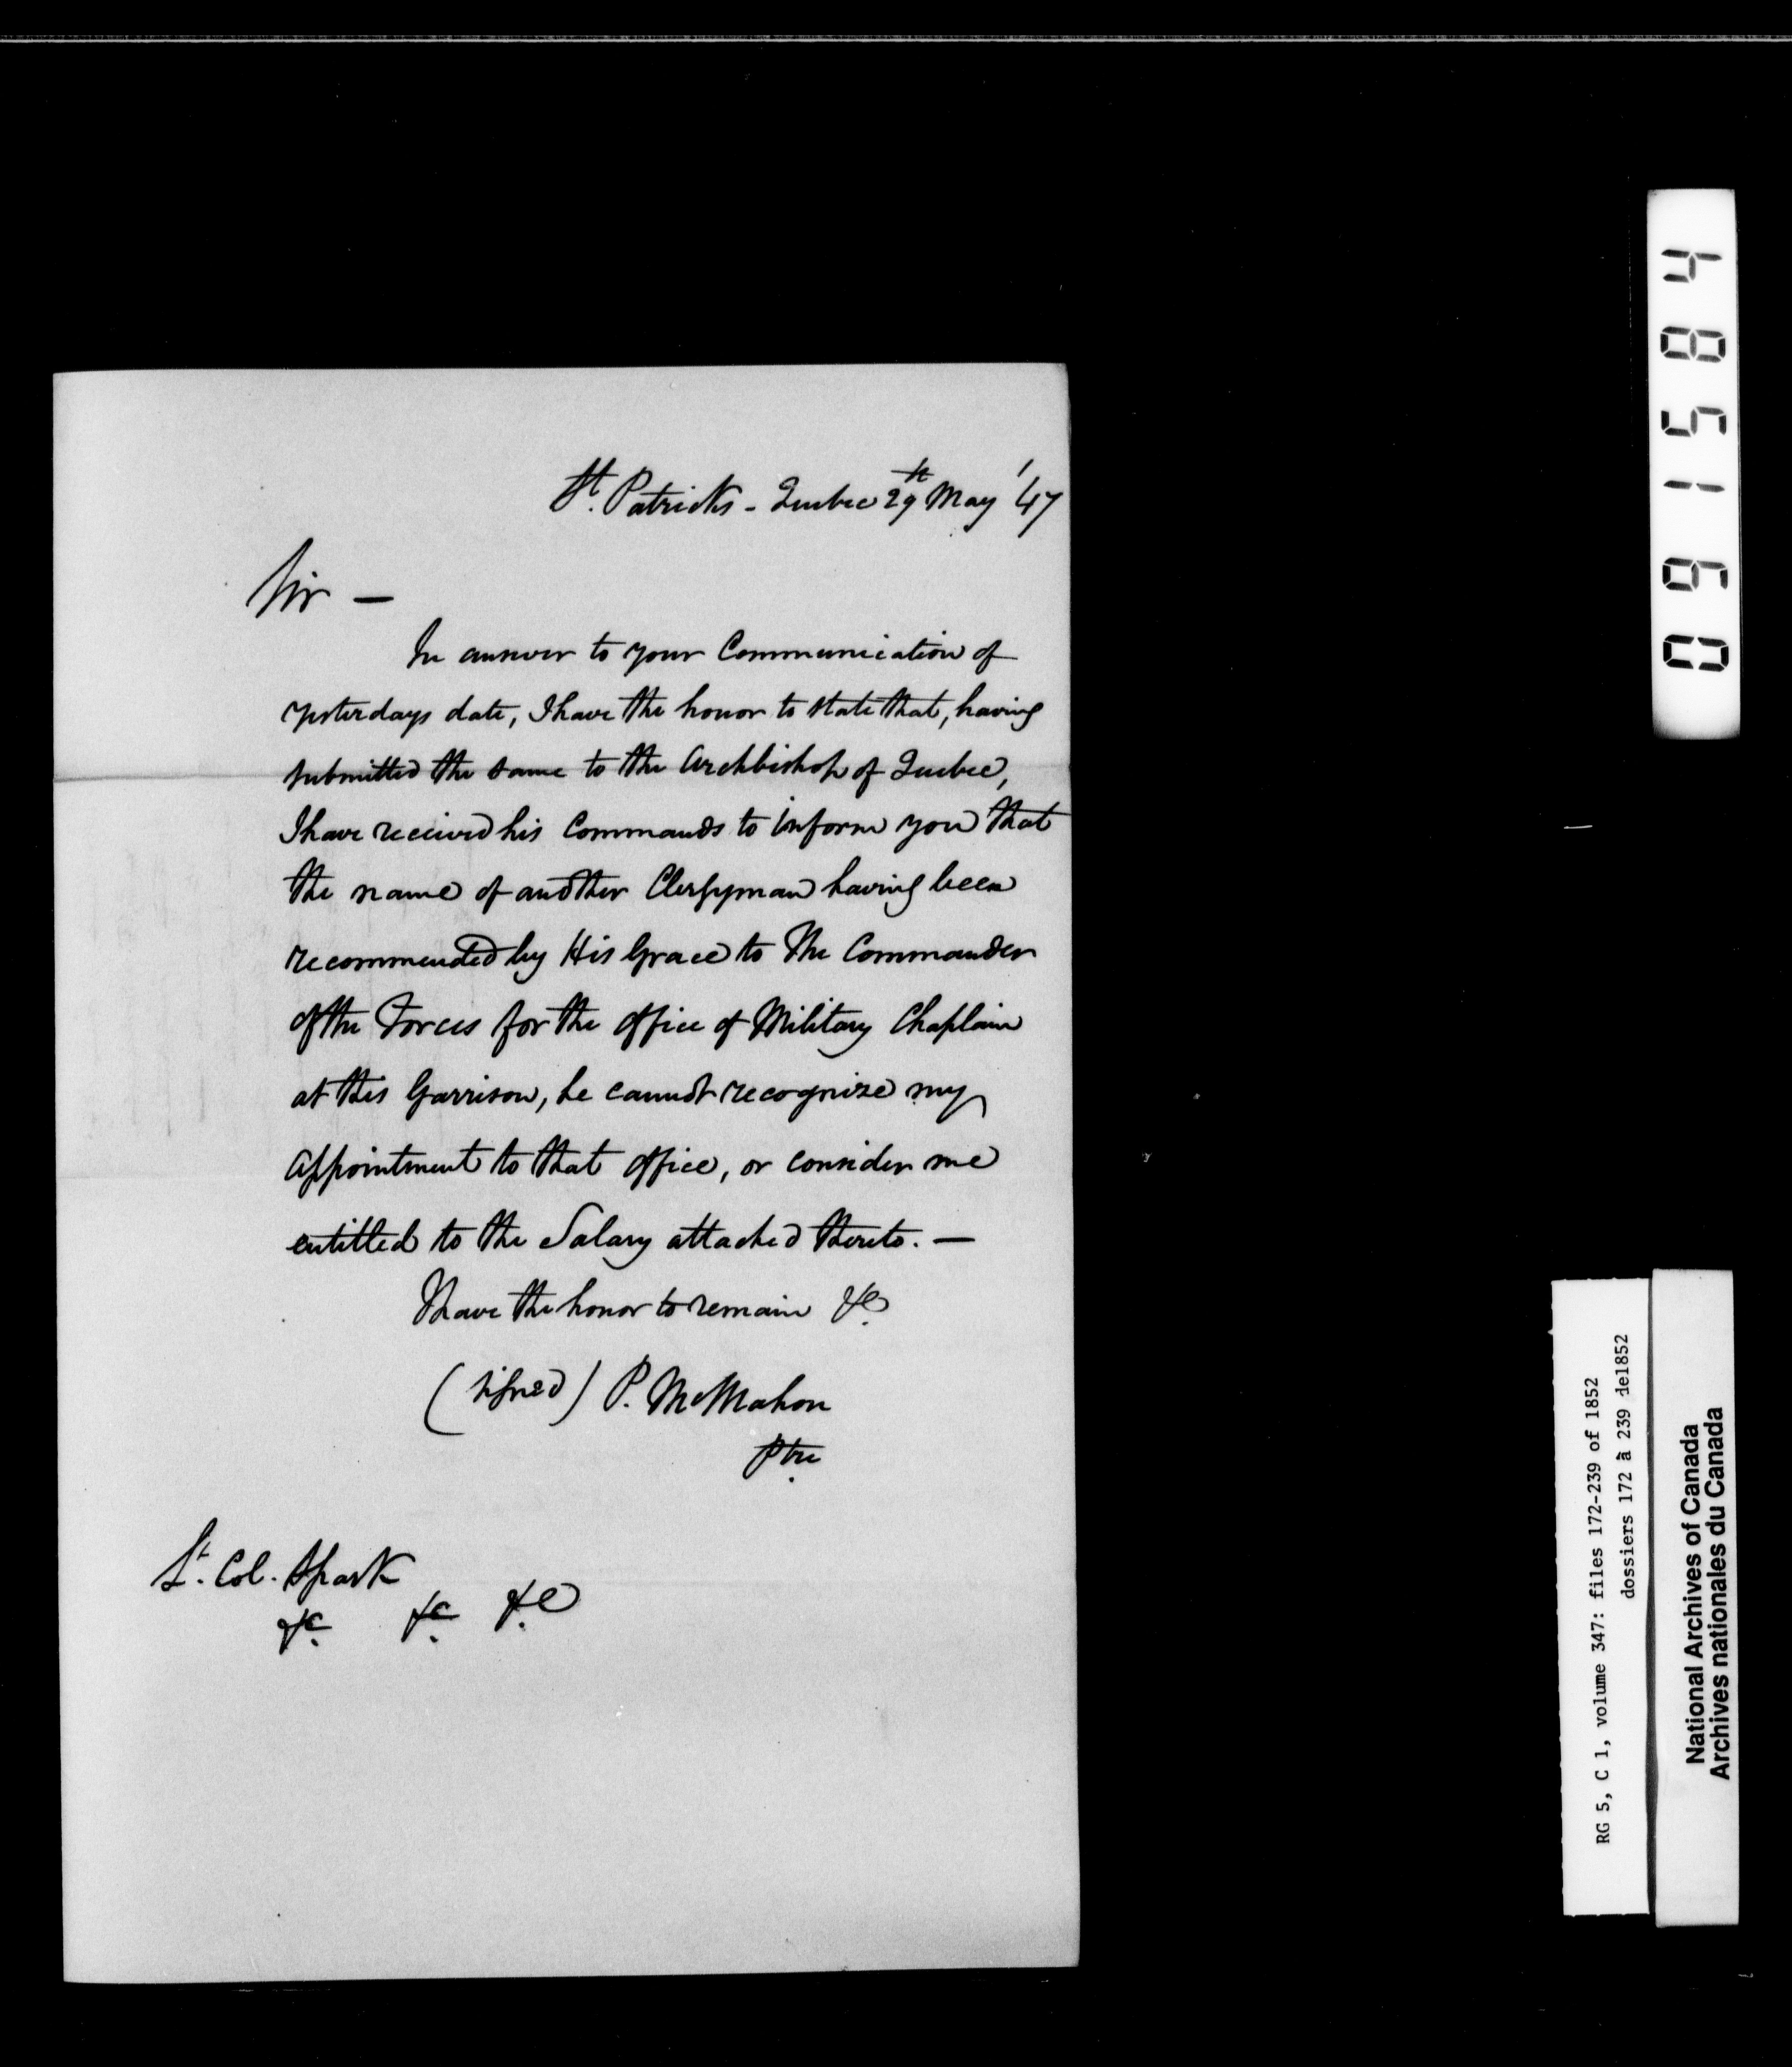 St. Patricks - Quebec 29th May '47
Sir —
In answer to your Communication of
yesterdays date, I have the honor to state that, having
submitted the same to the Archbishop of Quebec,
I have received his Commands to inform you that
the name of another Clergyman having been
recommended by His Grace to the Commander
of the Forces for the office of Military Chaplain
at this Garrison, he cannot recognise my
appointment to that office, or consider me
entitled to the Salary attached thereto. —
I have the honor to remain &c.
(signed) P. McMahon
Ptre.
Lt. Col. Spark
&c. &c. &c.
091584
RG 5, C 1, volume 347: files 172-239 of 1852
dossiers 172 à 239 de1852
National Archives of Canada
Archives nationales du Canada